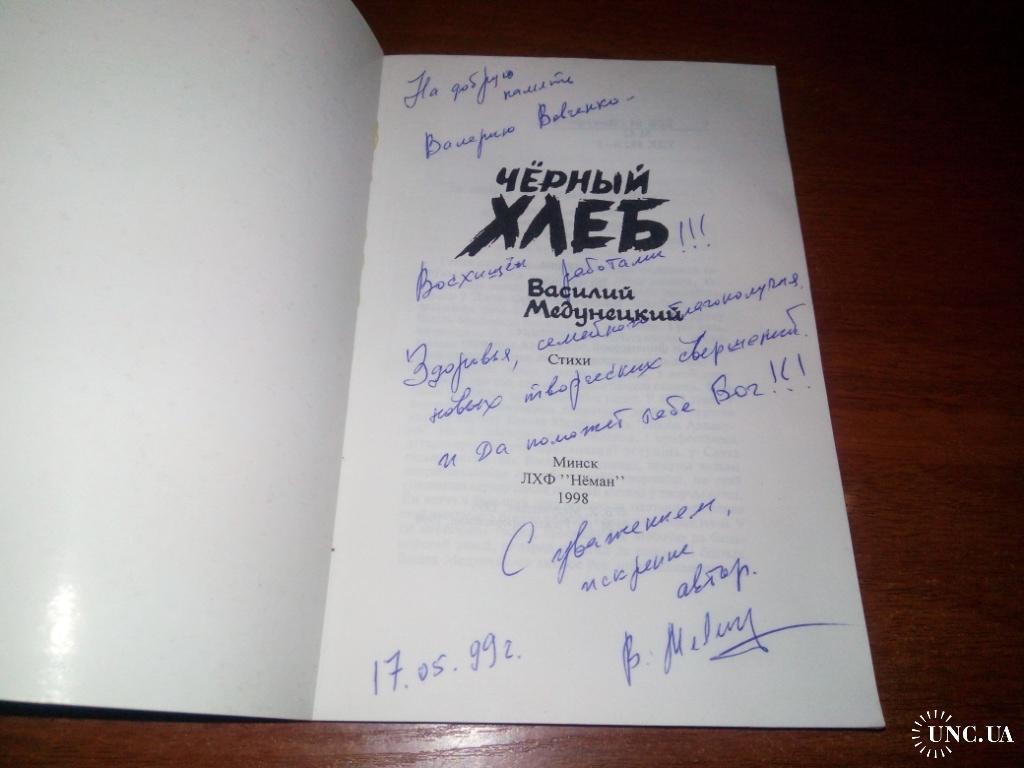 На добрую
памяти
Валерию Вовченко –
ЧЁРНЫЙ
ХЛЕБ
Восхищён работами!!!
Василий
Медунецкий
Здоровья, семейного благополучия,
Стихи
новых творческих свершений.
и Да поможет тебе Бог!!!
Минск
ЛХФ "Нёман"
1998
С уважением,
искренне
автор.
17.05.99г.
В.
UNC.UA